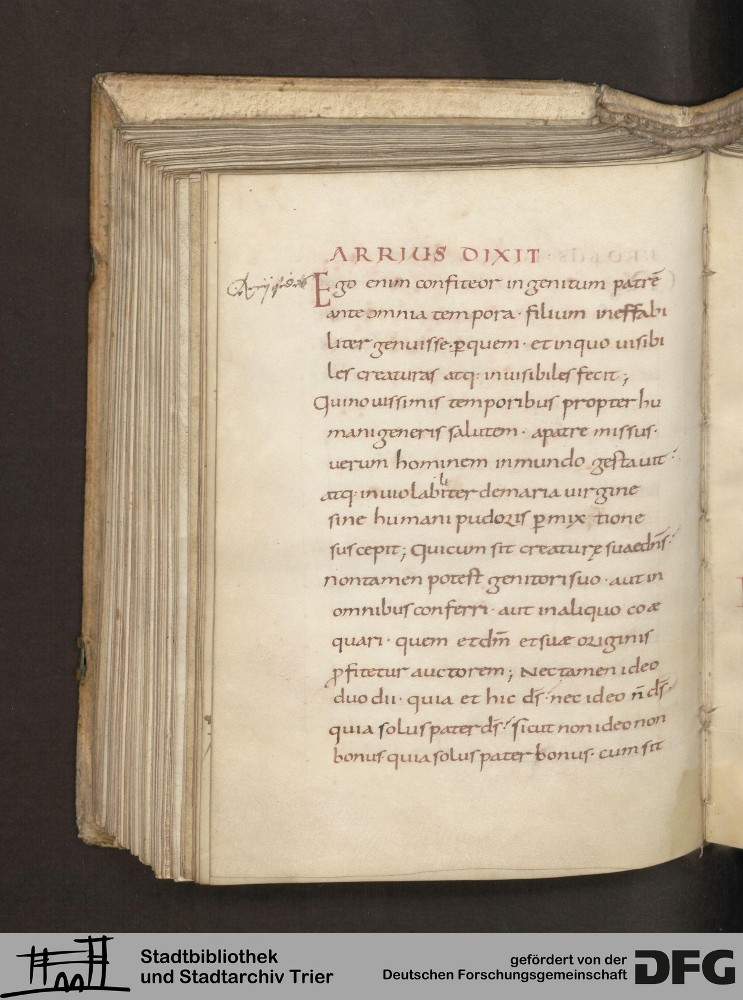 ARRIUS DIXIT
Ego enim confiteor ingenitum patrē
ante omnia tempora · filium ineffabi
liter genuisse · ꝑ quem · et inquo uisibi
les creaturas atq: inuisibiles fecit;
Qui nouissimis temporibus propter hu
mani generis salutem · apatre missus ·
uerum hominem inmundo gestauit ·
atq: inuiolabiliter demaria uirgine
sine humani pudoris ꝑmixtione
suscepit; Qui cum sit creaturę suae d̄s ·
non tamen potest genitori suo · aut in
omnibus conferri · aut inaliquo coæ
quari · quem et dm̄ et suæ originis
ꝓfitetur auctorem; Nec tamen ideo
duo dii · quia et hic d̄s · nec ideo n̄ d̄s ·
quia solus pater d̄s · sicut non ideo non
bonus quia solus pater bonus · cum sit
Stadtbibliothek
und Stadtarchiv Trier
gefördert von der
Deutschen Forschungsgemeinschaft
DFG